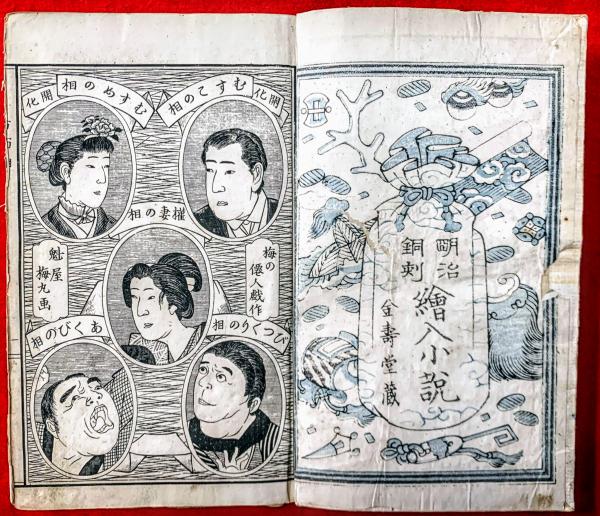 明治
銅刻
繪入小説
金壽堂藏
開化
むすこの相
むすめの相
開化
權妻の相
梅の
僊人戯作
魁屋
梅丸画
びつくりの相
あくびの相